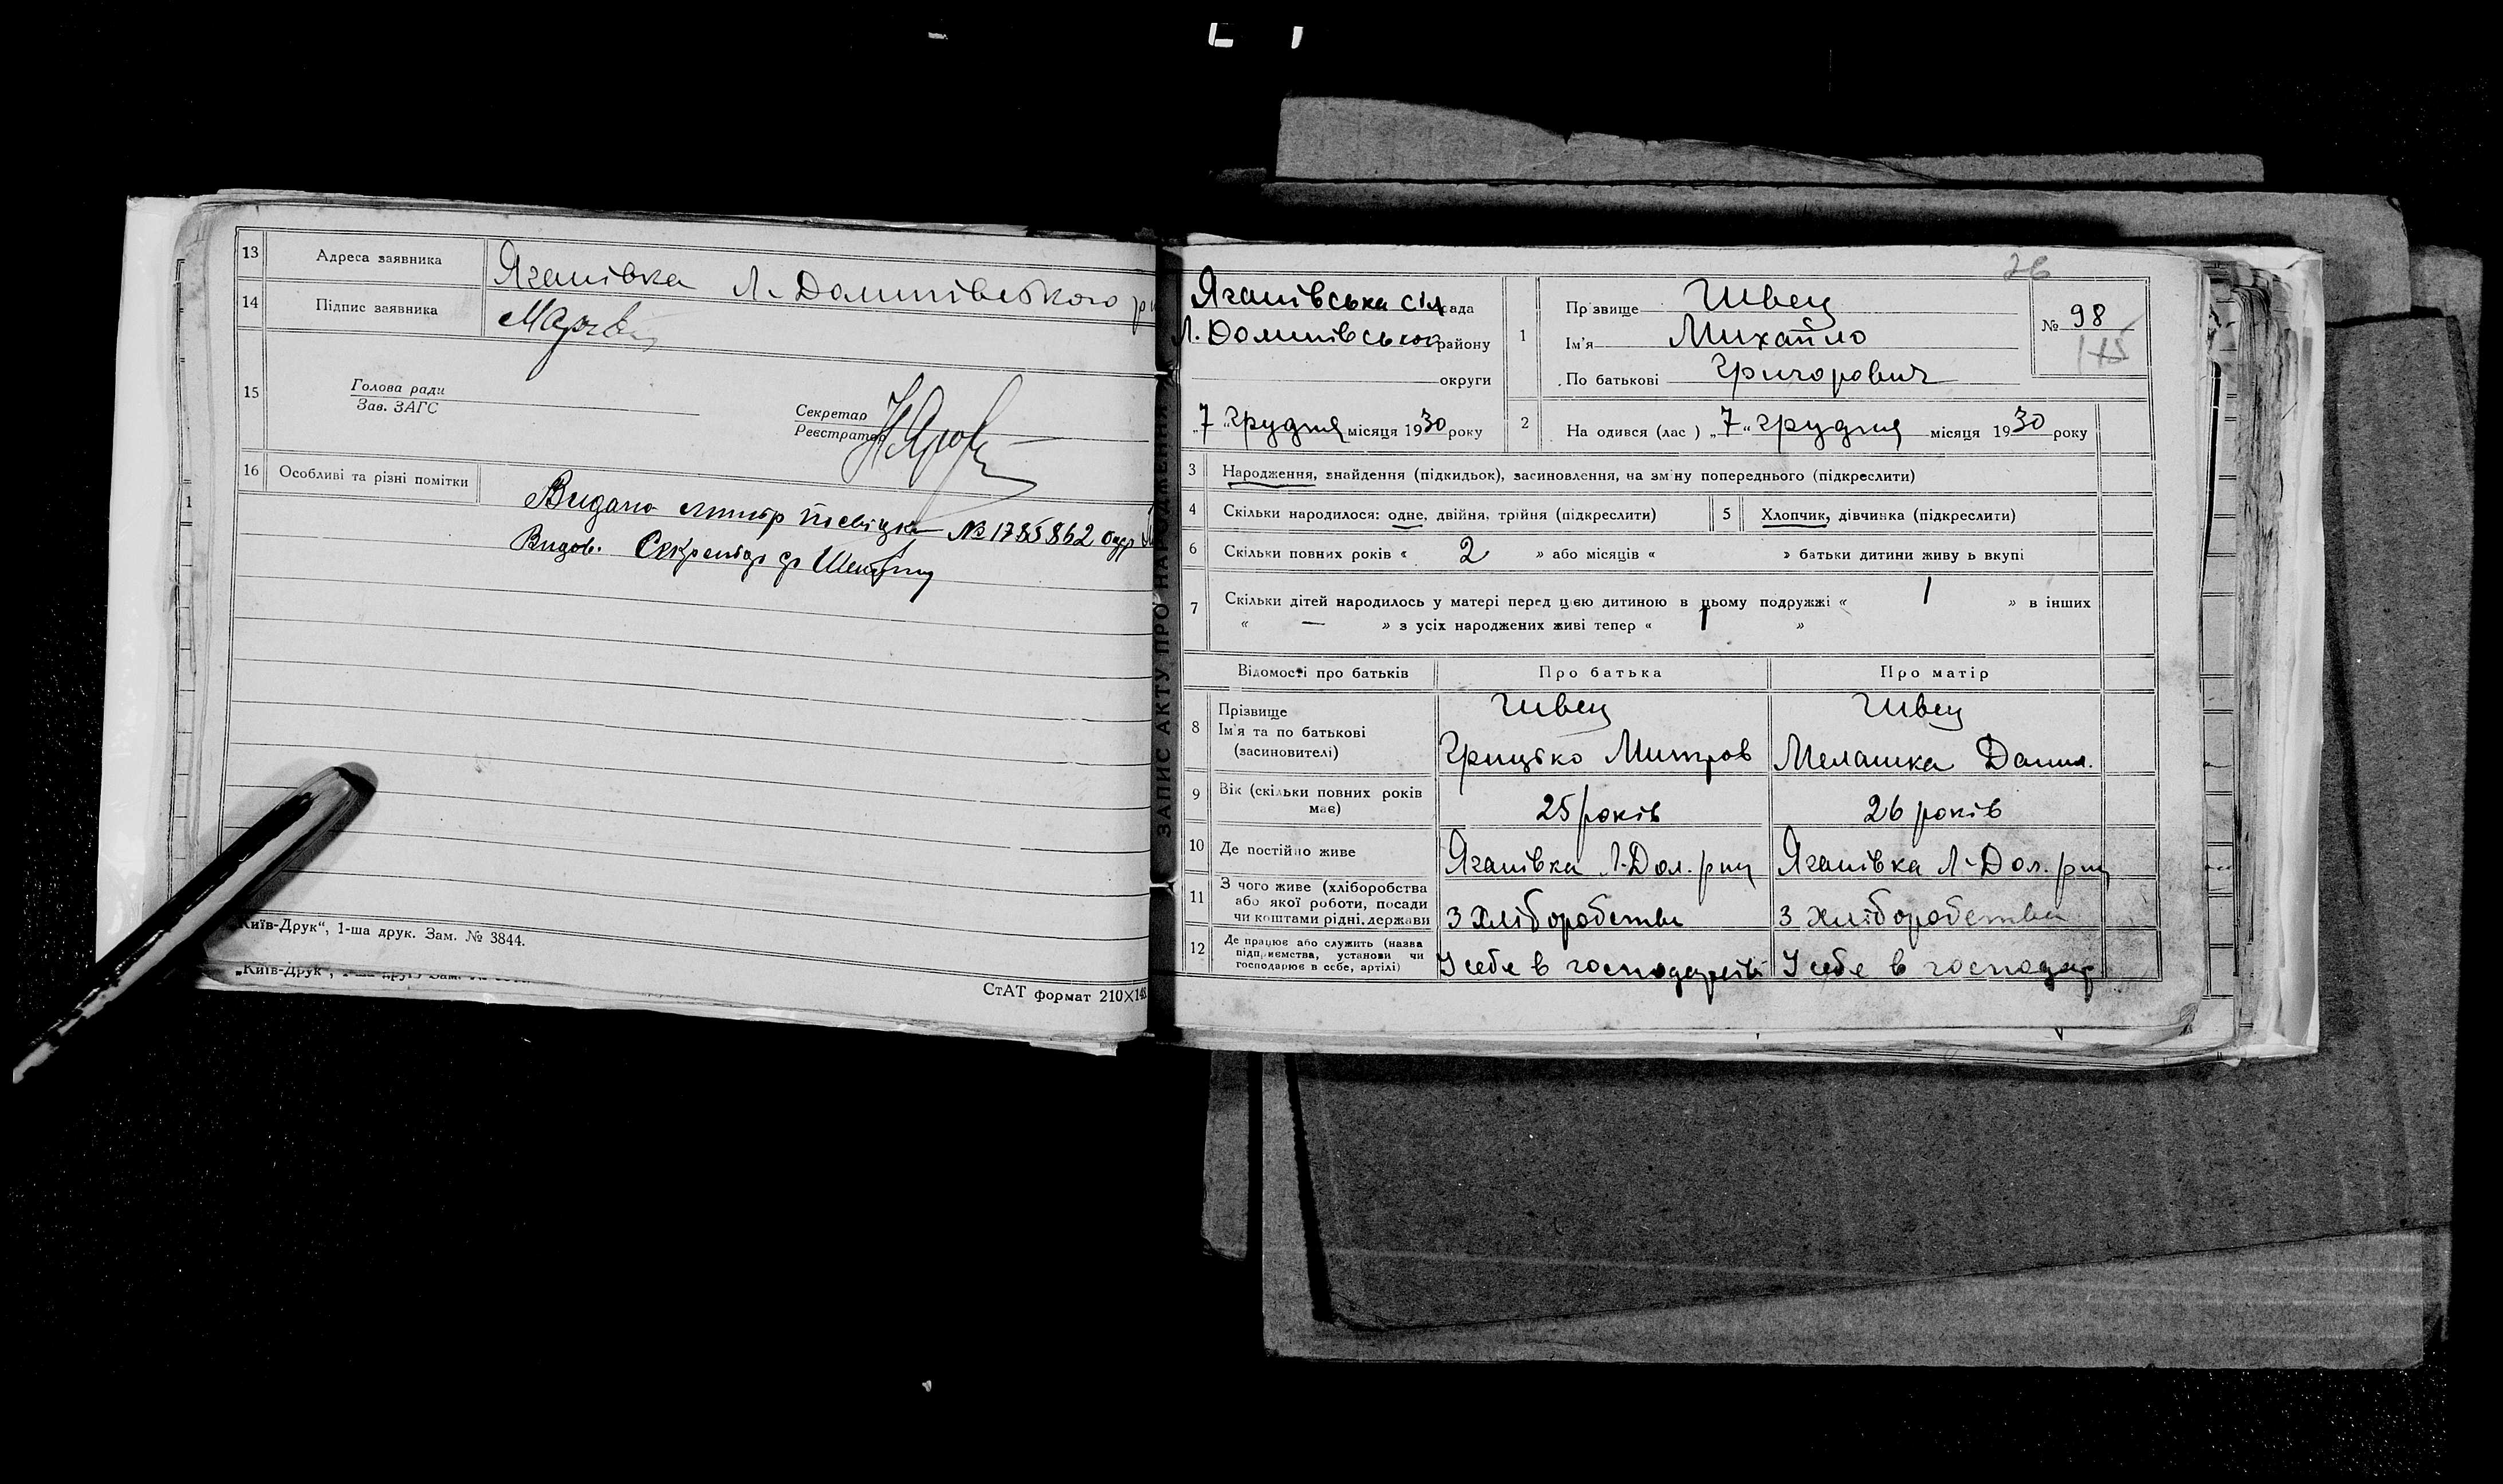 13 Адреса заявника Яганівка Л-Долинівського
14 Підпис заявника
15 Голова ради
Зав. ЗАГС
Секретар
Реєстратор
16 Особливі та різні помітки
Видано № 1785862
Видов. Секретар
„Київ-Друк“, 1-ша друк. Зам. № 3844.
СтАТ формат 210×148
ЗАПИС АКТУ ПРО НАРОДЖЕННЯ
26
Яганівська сільрада
Л. Долинівського району
округи
„7“ Грудня місяця 1930 року
1 Прізвище Швец
Ім'я Михайло
По батькові Григорович
№ 98
115
2 На одився (лас ) „7“ грудня місяця 1930 року
3 Народження, знайдення (підкидьок), засиновлення, на зміну попереднього (підкреслити)
4 Скільки народилося: одне, двійня, трійня (підкреслити) 5 Хлопчик, дівчинка (підкреслити)
6 Скільки повних років « 2 » або місяців « » батьки дитини живу ь вкупі
7 Скільки дітей народилось у матері перед цією дитиною в цьому подружжі « 1 » в інших
« — » з усіх народжених живі тепер « 1 »
Відомості про батьків Про батька Про матір
8 Прізвище Швец Швец
Ім'я та по батькові Грицько Митров Мелашка Данил.
(засиновителі)
9 Вік (скільки повних років має) 25 років 26 років
10 Де постійно живе Яганівка Л-Дол. рну Яганівка Л-Дол. рну
11 З чого живе (хліборобства або якої роботи, посади чи коштами рідні, держави З Хліборобства З хліборобства
12 Де працює або служить (назва підприємства, установи чи господарює в себе, артілі) У себе в господарстві У себе в господар